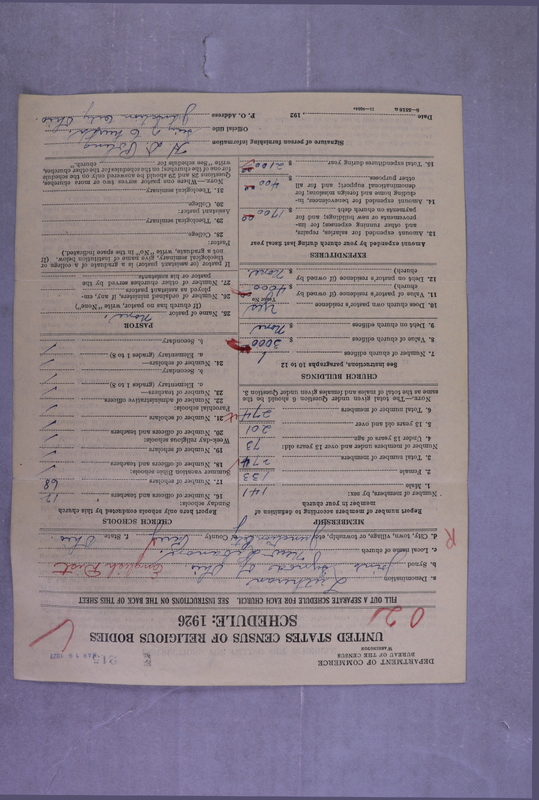 DEPARTMENT OF COMMERCE
BUREAU OF THE CENSUS
WASHINGTON
UNITED STATES CENSUS OF RELIGIOUS BODIES
SCHEDULE: 1926
FILL OUT A SEPARATE SCHEDULE FOR EACH CHURCH. SEE INSTRUCTIONS ON THE BACK OF THIS SHEET
a. Denomination Lutheran
b. Synod Joint Synod of Ohio English Dist
c. Local name of church New Lebanon
d. City, town, village, or township, etc. Junction City County Perry State Ohio
MEMBERSHIP
Report number of members according to definition of member in your church
Number of members, by sex:
1. Male 141
2. Female 133
3. Total number of members 274
Number of members under and over 13 years old:
4. Under 13 years of age 73
5. 13 years old and over 201
6. Total number of members 274
NOTE.—The total given under Question 6 should be the same as the total of males and females given under Question 3.
CHURCH BUILDINGS
See instructions, paragraphs 10 to 12
7. Number of church edifices 1
8. Value of church edifices $ 3000
9. Debt on church edifices $ None
10. Does church own pastor's residence Yes
11. Value of pastor's residence (if owned by church) $ 4000
12. Debt on pastor's residence (if owned by church) $ None
EXPENDITURES
Amount expended by your church during last fiscal year
13. Amount expended for salaries, repairs, and other running expenses; for improvements or new buildings; and for payments on church debt $ 1700
14. Amount expended for benevolences, including home and foreign missions; for denominational support; and for all other purposes $ 400
15. Total expenditures during year $ 2100
CHURCH SCHOOLS
Report here only schools conducted by this church
Sunday schools:
16. Number of officers and teachers 12
17. Number of scholars 68
Summer vacation Bible schools:
18. Number of officers and teachers
19. Number of scholars
Week-day religious schools:
20. Number of officers and teachers
21. Number of scholars
Parochial schools:
22. Number of administrative officers
23. Number of teachers—
a. Elementary (grades 1 to 8)
b. Secondary
24. Number of scholars—
a. Elementary (grades 1 to 8)
b. Secondary
PASTOR
25. Name of pastor None
(If church has no pastor, write "None")
26. Number of ordained ministers, if any, employed as assistant pastors
27. Number of other churches served by the pastor or his assistants
If pastor (or assistant pastor) is a graduate of a college or theological seminary, give names of institution below. (If not a graduate, write "No" in the space indicated.)
Pastor:
28. College
29. Theological seminary
Assistant pastor:
30. College
31. Theological seminary
NOTE.—Where one pastor serves two or more churches, Questions 28 and 29 should be answered only on the schedule for one of the churches; on the schedules for the other churches, write "See schedule for church."
Signature of person furnishing information
Official title
P. O. Address Junction City Ohio
Date 192